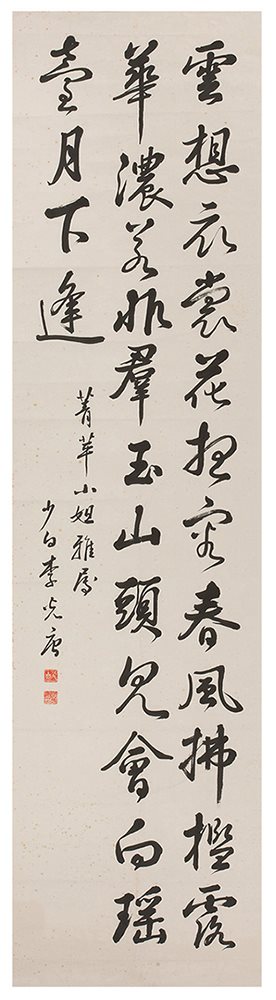 雲想衣裳花想容春風拂檻露
華濃若非羣玉山頭見會向瑤
臺月下逢
菁華小姐雅屬
少白李光唐